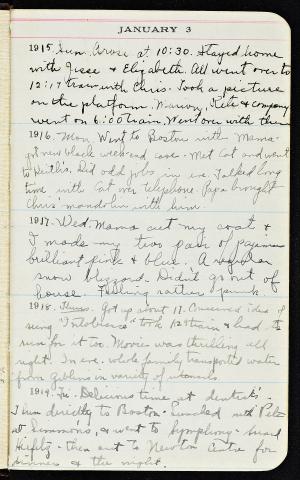 JANUARY 3
1915. Sun. Arose at 10:30. Stayed home
with Jesse & Elizabeth. All went over to
12:17 train with Chris. Took a picture
on the platform. Kate & Company
went on 6:00 train. Went over with them
1916. Mon. Went to Boston with Mama-
got new black week-end case. Met Cot and went
to Keith's. Did odd jobs in eve. Talked long
time with Cot over telephone. Papa brought
Chris' mandolin with him.
1917. Wed. Mama cut my coat &
I made my two pair of pajamas
brilliant pink & blue. A regular
snow blizzard. Didn't go out of
house. Feeling rather punk.
1918. Thurs. Got up about 17. Conceived idea of
seeing "Intolerance" took 12 train & had to
run for it too. Movie was thrilling all
right. In eve. whole family transported water
from in variety of utensils.
1919. Fri. Delicious time at dentist's.
Then directly to Boston. Lunched with
at Simmons, & went to Symphony - heard
Heifetz - then out to Newton Centre for
dinner & the night.